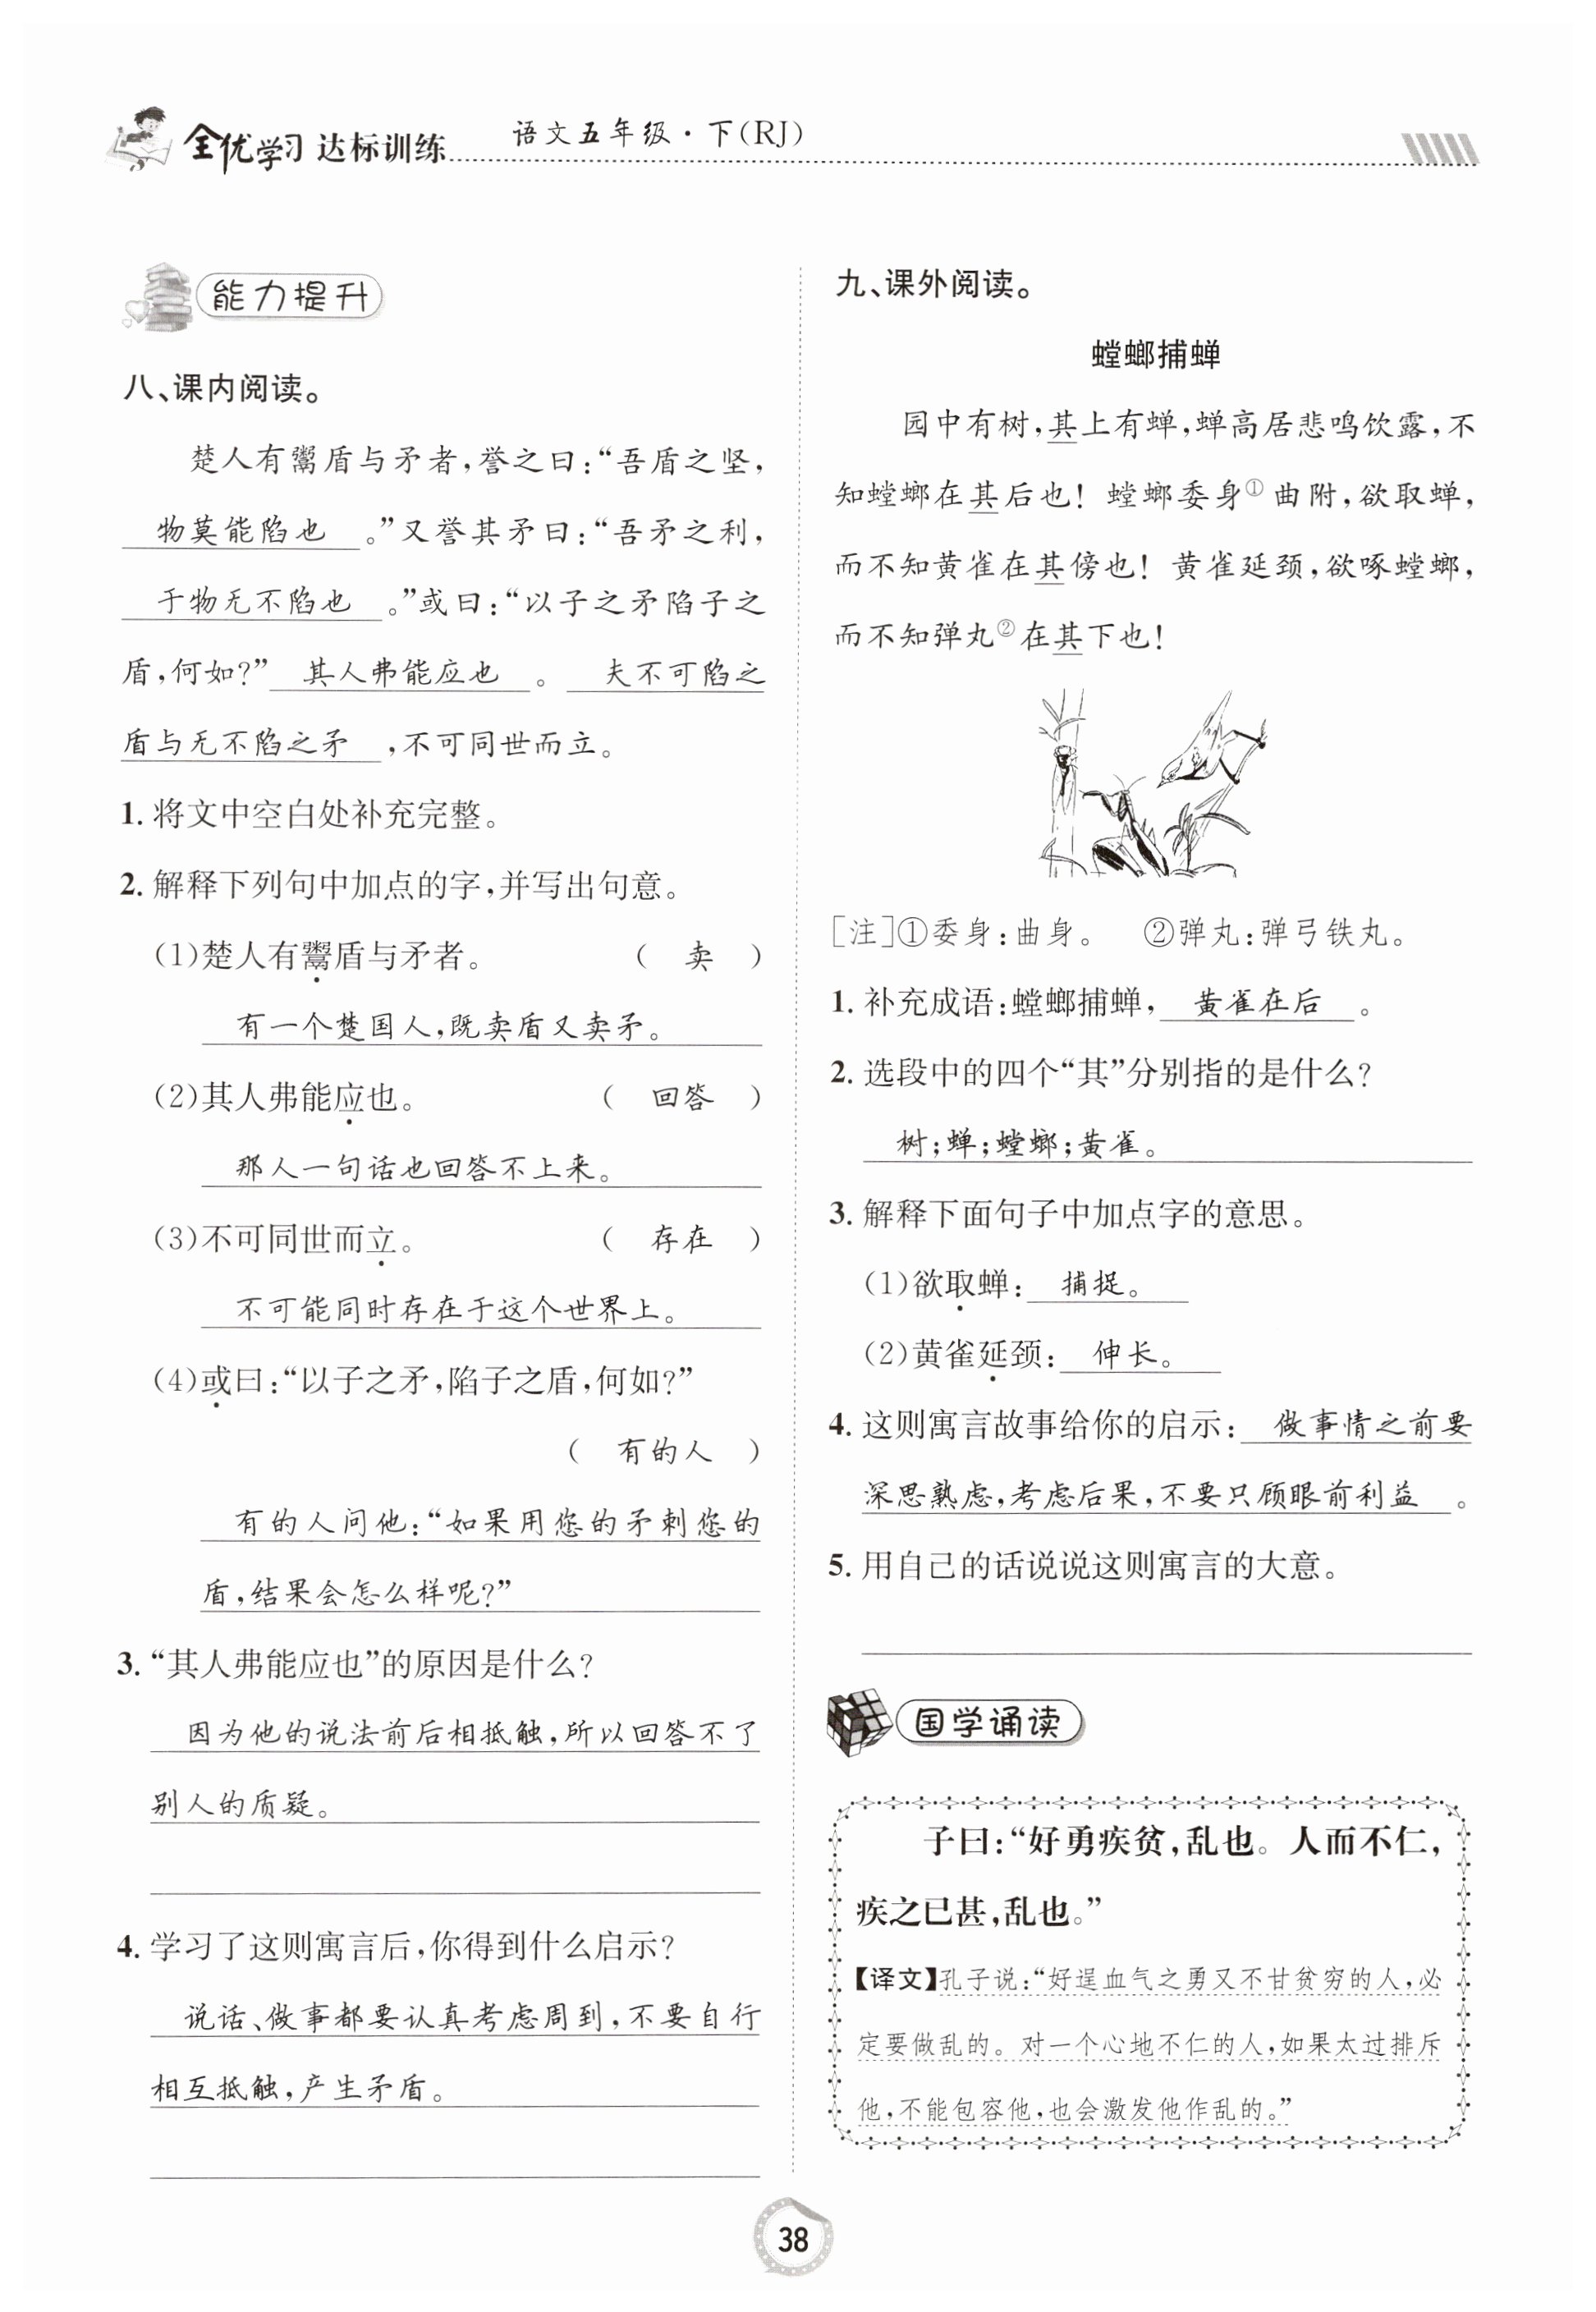 全优学习 达标训练 语文五年级·下(RJ)
能力提升
八、课内阅读。
楚人有鬻盾与矛者,誉之曰:“吾盾之坚,
物莫能陷也。”又誉其矛曰:“吾矛之利,
于物无不陷也。”或曰:“以子之矛陷子之
盾,何如?” 其人弗能应也。 夫不可陷之
盾与无不陷之矛,不可同世而立。
1. 将文中空白处补充完整。
2. 解释下列句中加点的字,并写出句意。
(1)楚人有鬻盾与矛者。 ( 卖 )
有一个楚国人,既卖盾又卖矛。
(2)其人弗能应也。 ( 回答 )
那人一句话也回答不上来。
(3)不可同世而立。 ( 存在 )
不可能同时存在于这个世界上。
(4)或曰:“以子之矛,陷子之盾,何如?”
( 有的人 )
有的人问他:“如果用您的矛刺您的
盾,结果会怎么样呢?”
3. “其人弗能应也”的原因是什么?
因为他的说法前后相抵触,所以回答不了
别人的质疑。
4. 学习了这则寓言后,你得到什么启示?
说话、做事都要认真考虑周到,不要自行
相互抵触,产生矛盾。
九、课外阅读。
螳螂捕蝉
园中有树,其上有蝉,蝉高居悲鸣饮露,不
知螳螂在其后也! 螳螂委身①曲附,欲取蝉,
而不知黄雀在其傍也! 黄雀延颈,欲啄螳螂,
而不知弹丸②在其下也!
[注]①委身:曲身。 ②弹丸:弹弓铁丸。
1. 补充成语:螳螂捕蝉, 黄雀在后 。
2. 选段中的四个“其”分别指的是什么?
树;蝉;螳螂;黄雀。
3. 解释下面句子中加点字的意思。
(1)欲取蝉: 捕捉。
(2)黄雀延颈: 伸长。
4. 这则寓言故事给你的启示: 做事情之前要
深思熟虑,考虑后果,不要只顾眼前利益 。
5. 用自己的话说说这则寓言的大意。
国学诵读
子曰:“好勇疾贫,乱也。人而不仁,
疾之已甚,乱也。”
【译文】孔子说:“好逞血气之勇又不甘贫穷的人,必
定要做乱的。对一个心地不仁的人,如果太过排斥
他,不能包容他,也会激发他作乱的。”
38